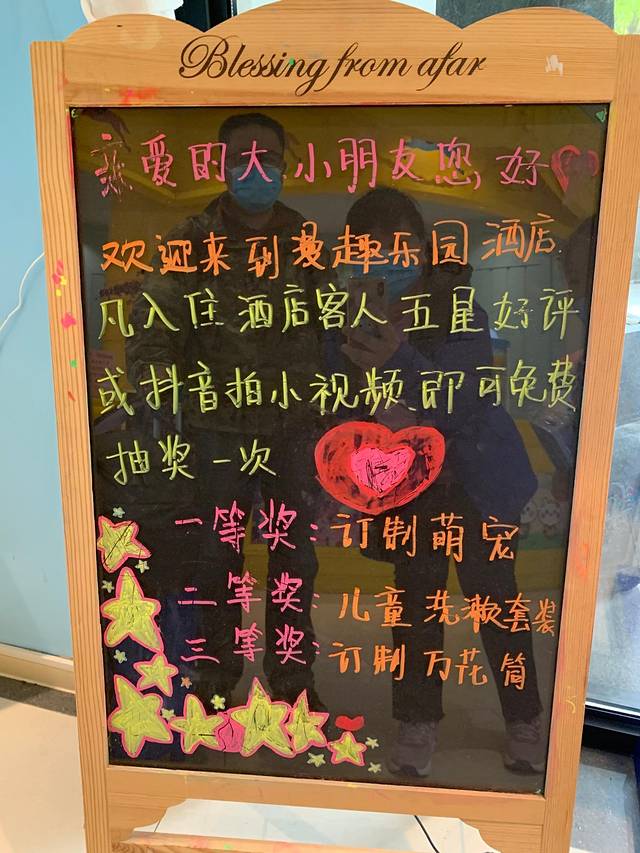 Blessing from afar
亲爱的大小朋友您,好
欢迎来到漫趣乐园酒店
凡入住酒店客人五星好评
或抖音拍小视频,即可免费
抽奖一次
一等奖:订制萌宠
二等奖:儿童洗漱套装
三等奖:订制万花筒